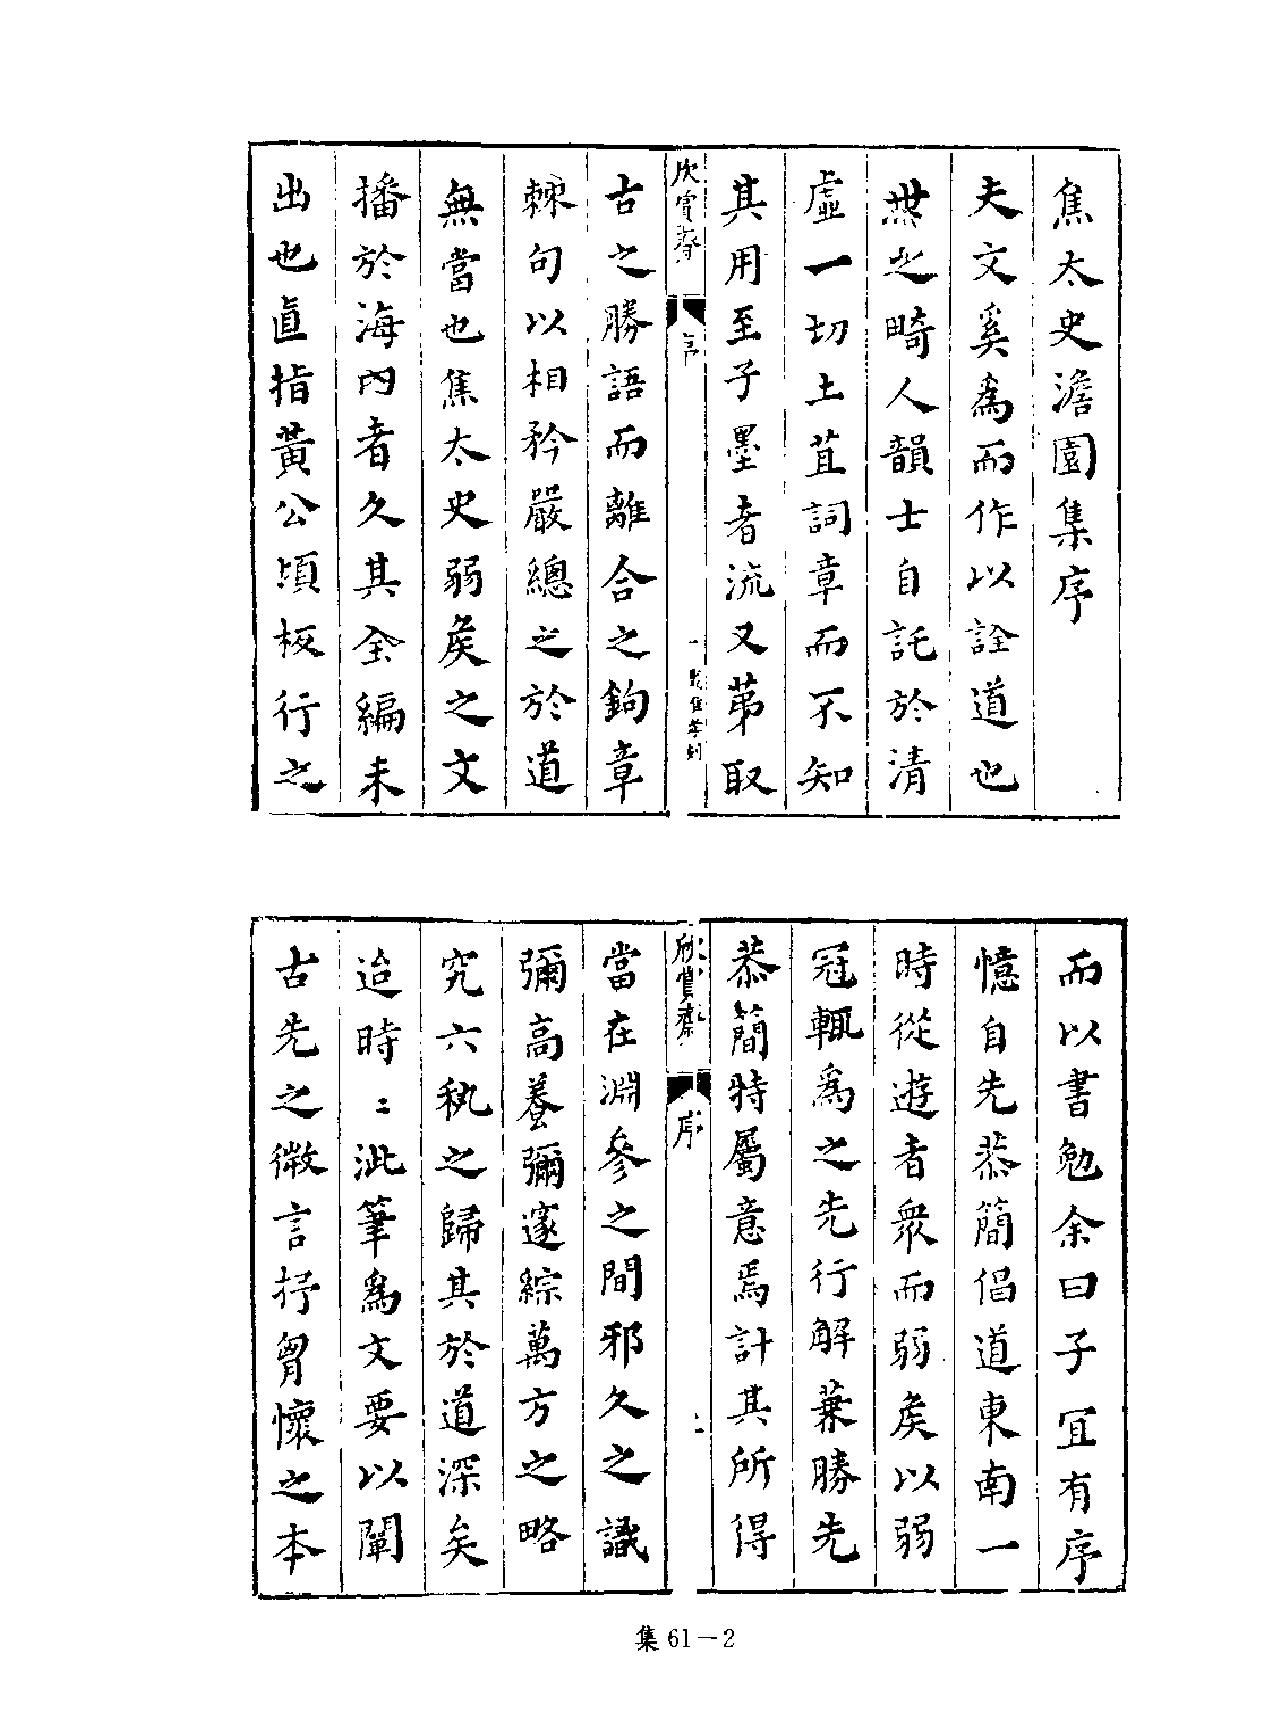 焦太史澹園集序
夫文奚為而作以詮道也
世之畸人韻士自託於清
虛一切土苴詞章而不知
其用至子墨者流又苐取
欣賞齋
序
一
古之勝語而離合之鉤章
棘句以相矜嚴總之於道
無當也焦太史弱矦之文
播於海內者久其全編未
出也直指黃公頃板行之
而以書勉余曰子冝有序
憶自先恭簡倡道東南一
時從遊者衆而弱矦以弱
冠輒為之先行解蒹勝先
恭簡特屬意焉計其所得
欣賞齋
序
當在淵參之間邪久之識
彌高養彌邃綜萬方之略
究六執之歸其於道深矣
迨時二泚筆為文要以闡
古先之微言抒胷懷之本
集 61－2